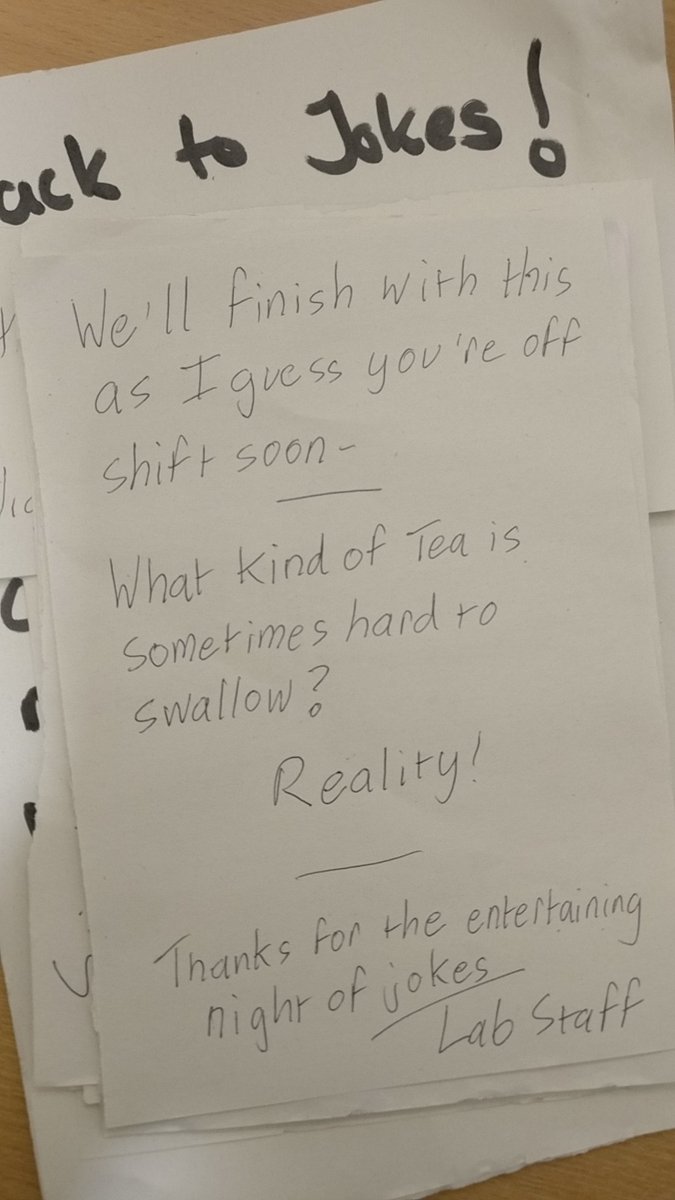 ack to Jokes!
We'll finish with this
as I guess you're off
shift soon-
What kind of Tea is
sometimes hard to
swallow?
Reality!
Thanks for the entertaining
night of jokes
Lab Staff